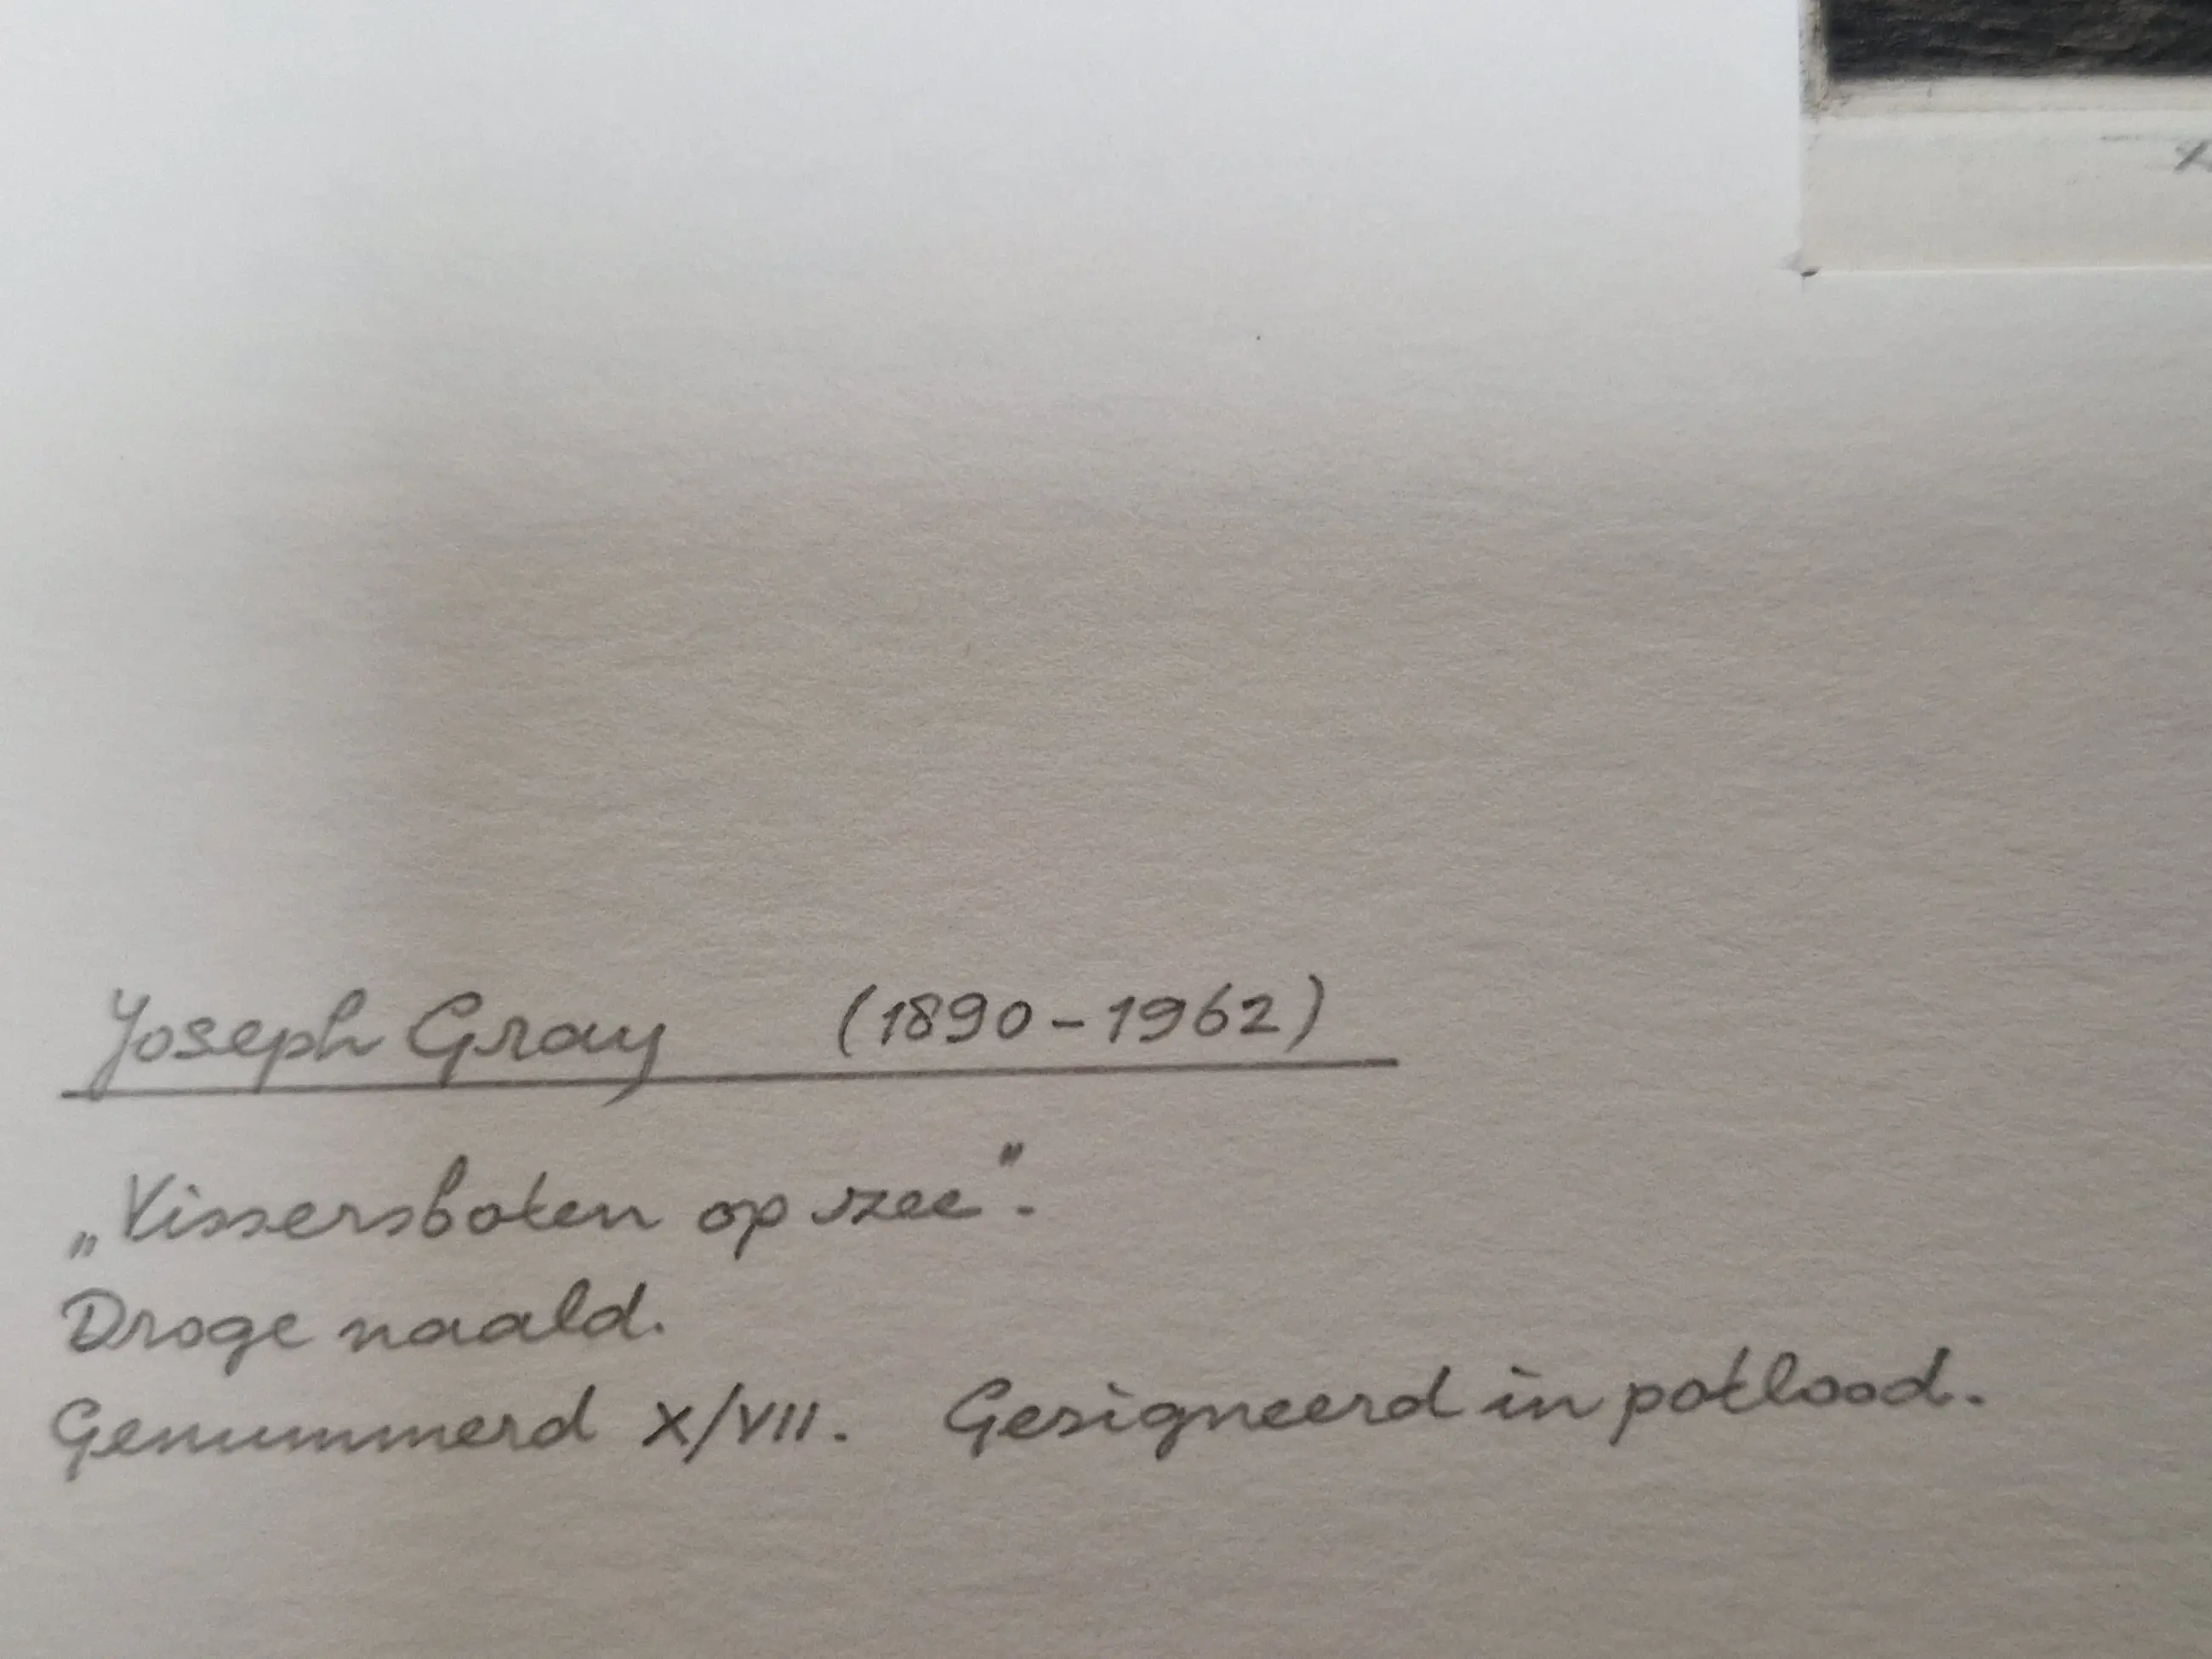 Joseph Gray (1890-1962)
„Vissersboten op zee".
Droge naald.
Genummerd X/VII. Gesigneerd in potlood.